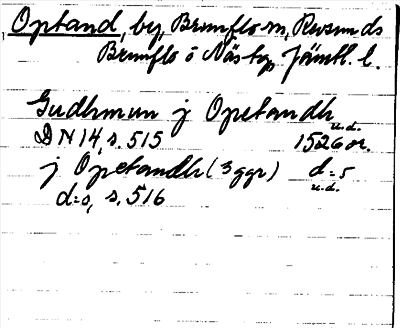 Optand, by, Brunflo sn, Revsunds
Brunflo o Näs tg. Jämtl. l.
Gudhmun j Opetandh
u.d.
DN 14, s. 515 1526 or.
j Opetandh (3 ggr) d=o
u.d.
d=o, s. 516